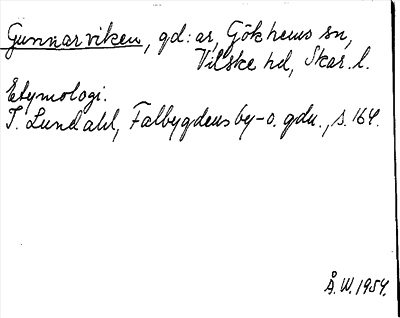 Gunnarviken, gd:ar, Gökhems sn,
Vilske hd, Skar. l.
Etymologi.
I. Lundahl, Falbygdens by- o. gdn., s. 164.
Å. W. 1954.